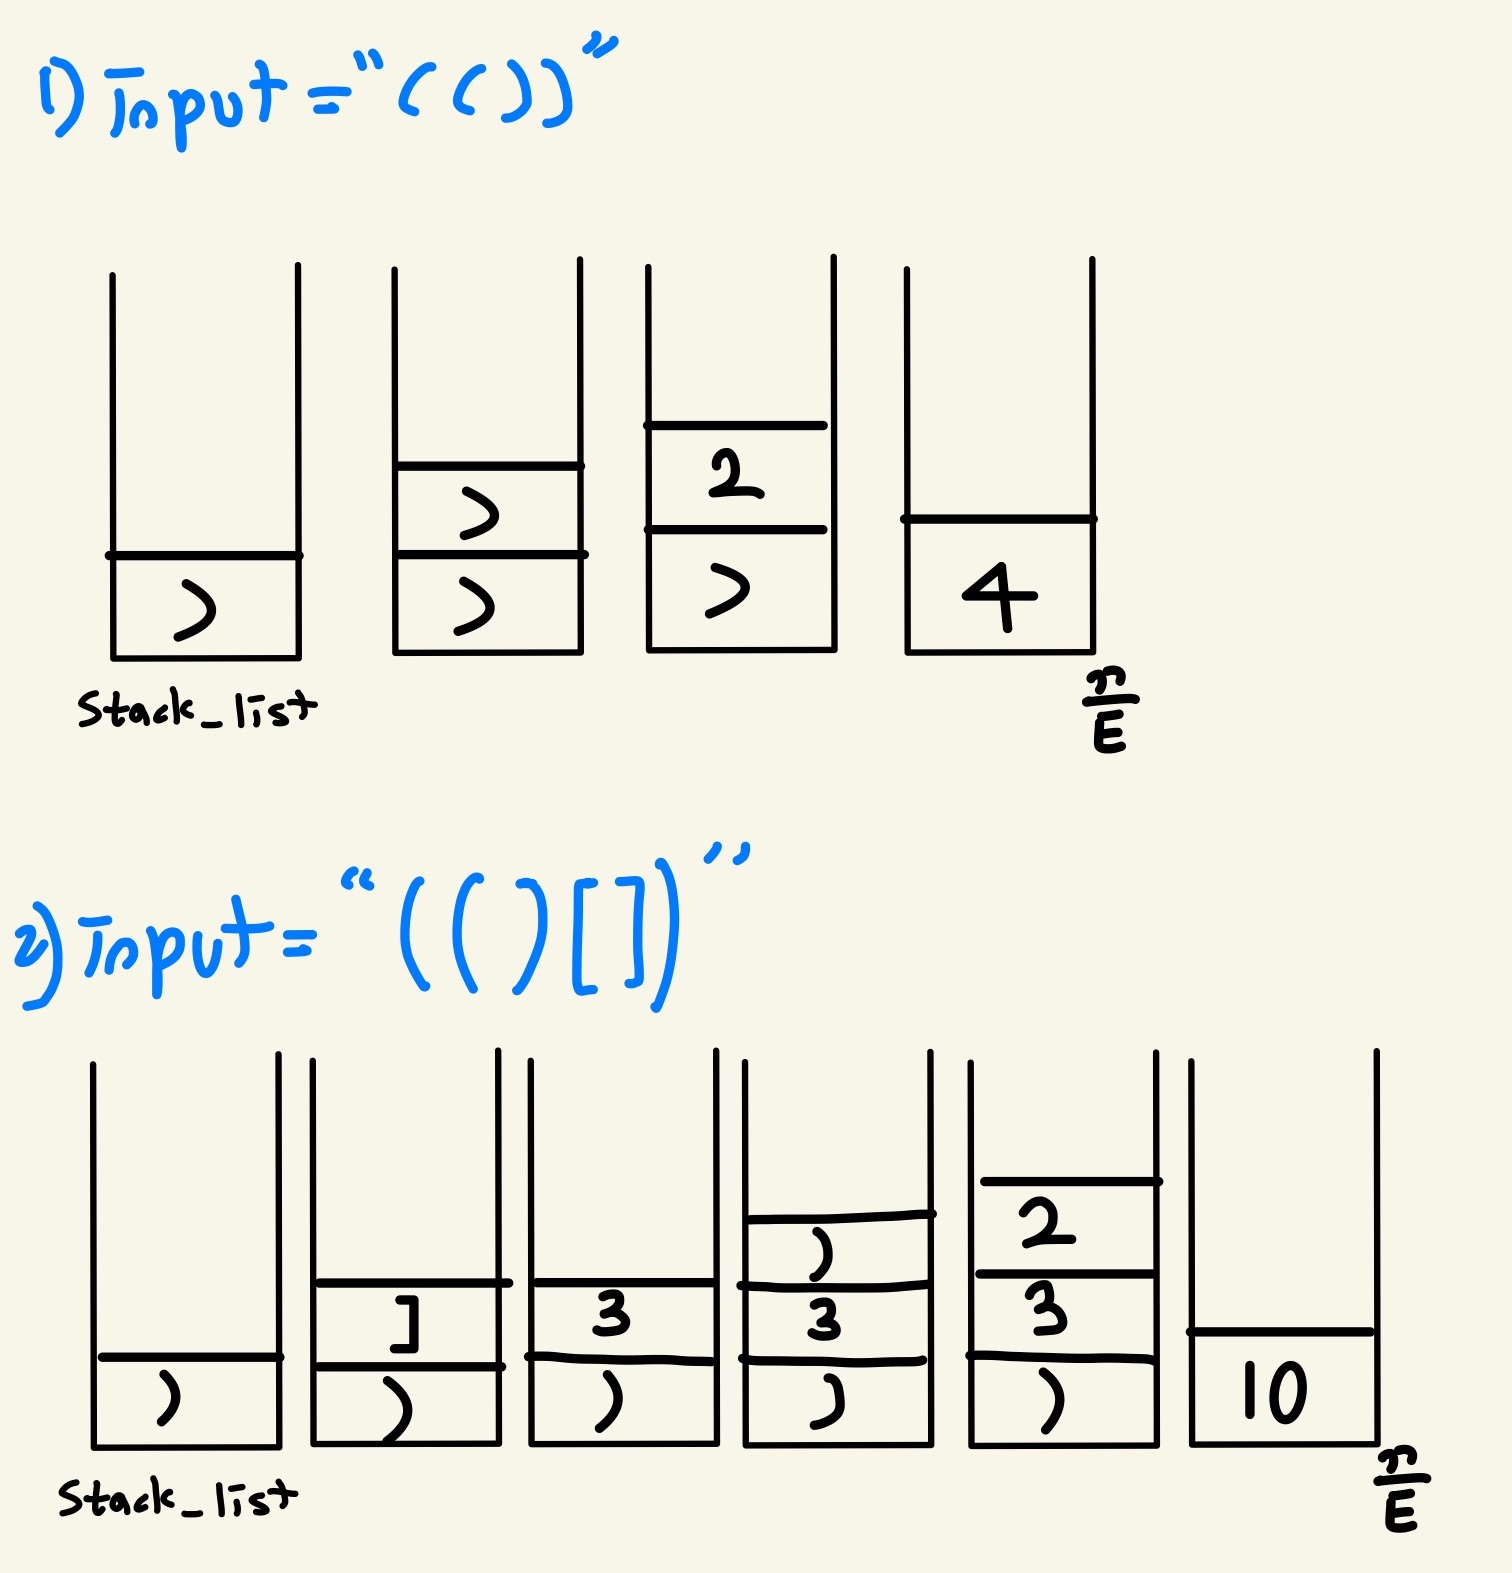 1) input = "(())"
2
) ) ) 4
)
stack_list
끝
2) input = "(()[])"
2
) 3
] 3 3
) ) ) ) ) 10
stack_list
끝